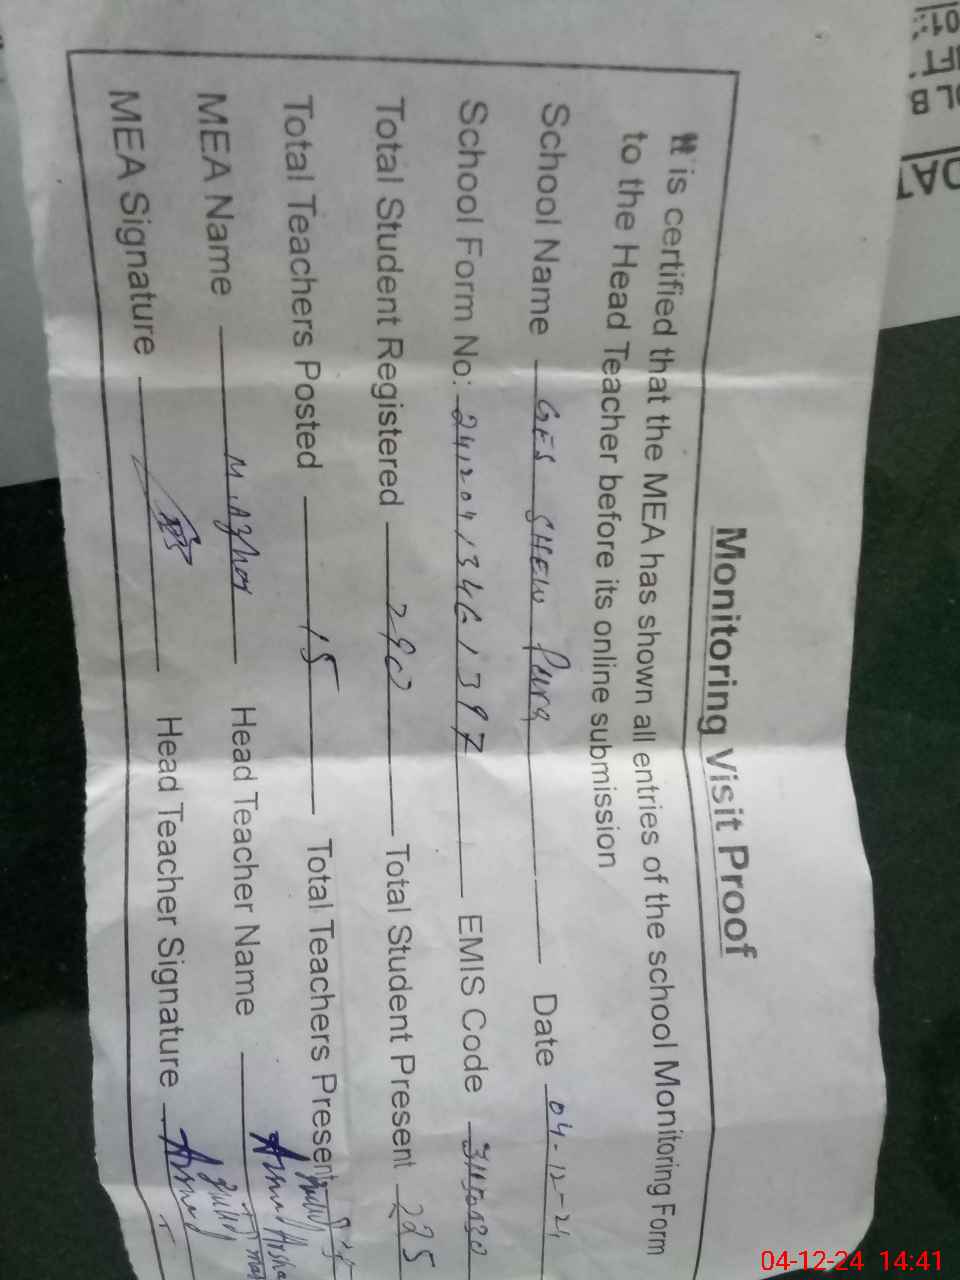 Monitoring Visit Proof
It is certified that the MEA has shown all entries of the school Monitoring Form
to the Head Teacher before its online submission
School Name GES SHEW Date 04-12-24
School Form No: 24120413461397 EMIS Code
Total Student Registered 290 Total Student Present 225
Total Teachers Posted 15 Total Teachers Present
MEA Name M. Azhar Head Teacher Name
MEA Signature Head Teacher Signature
04-12-24 14:41